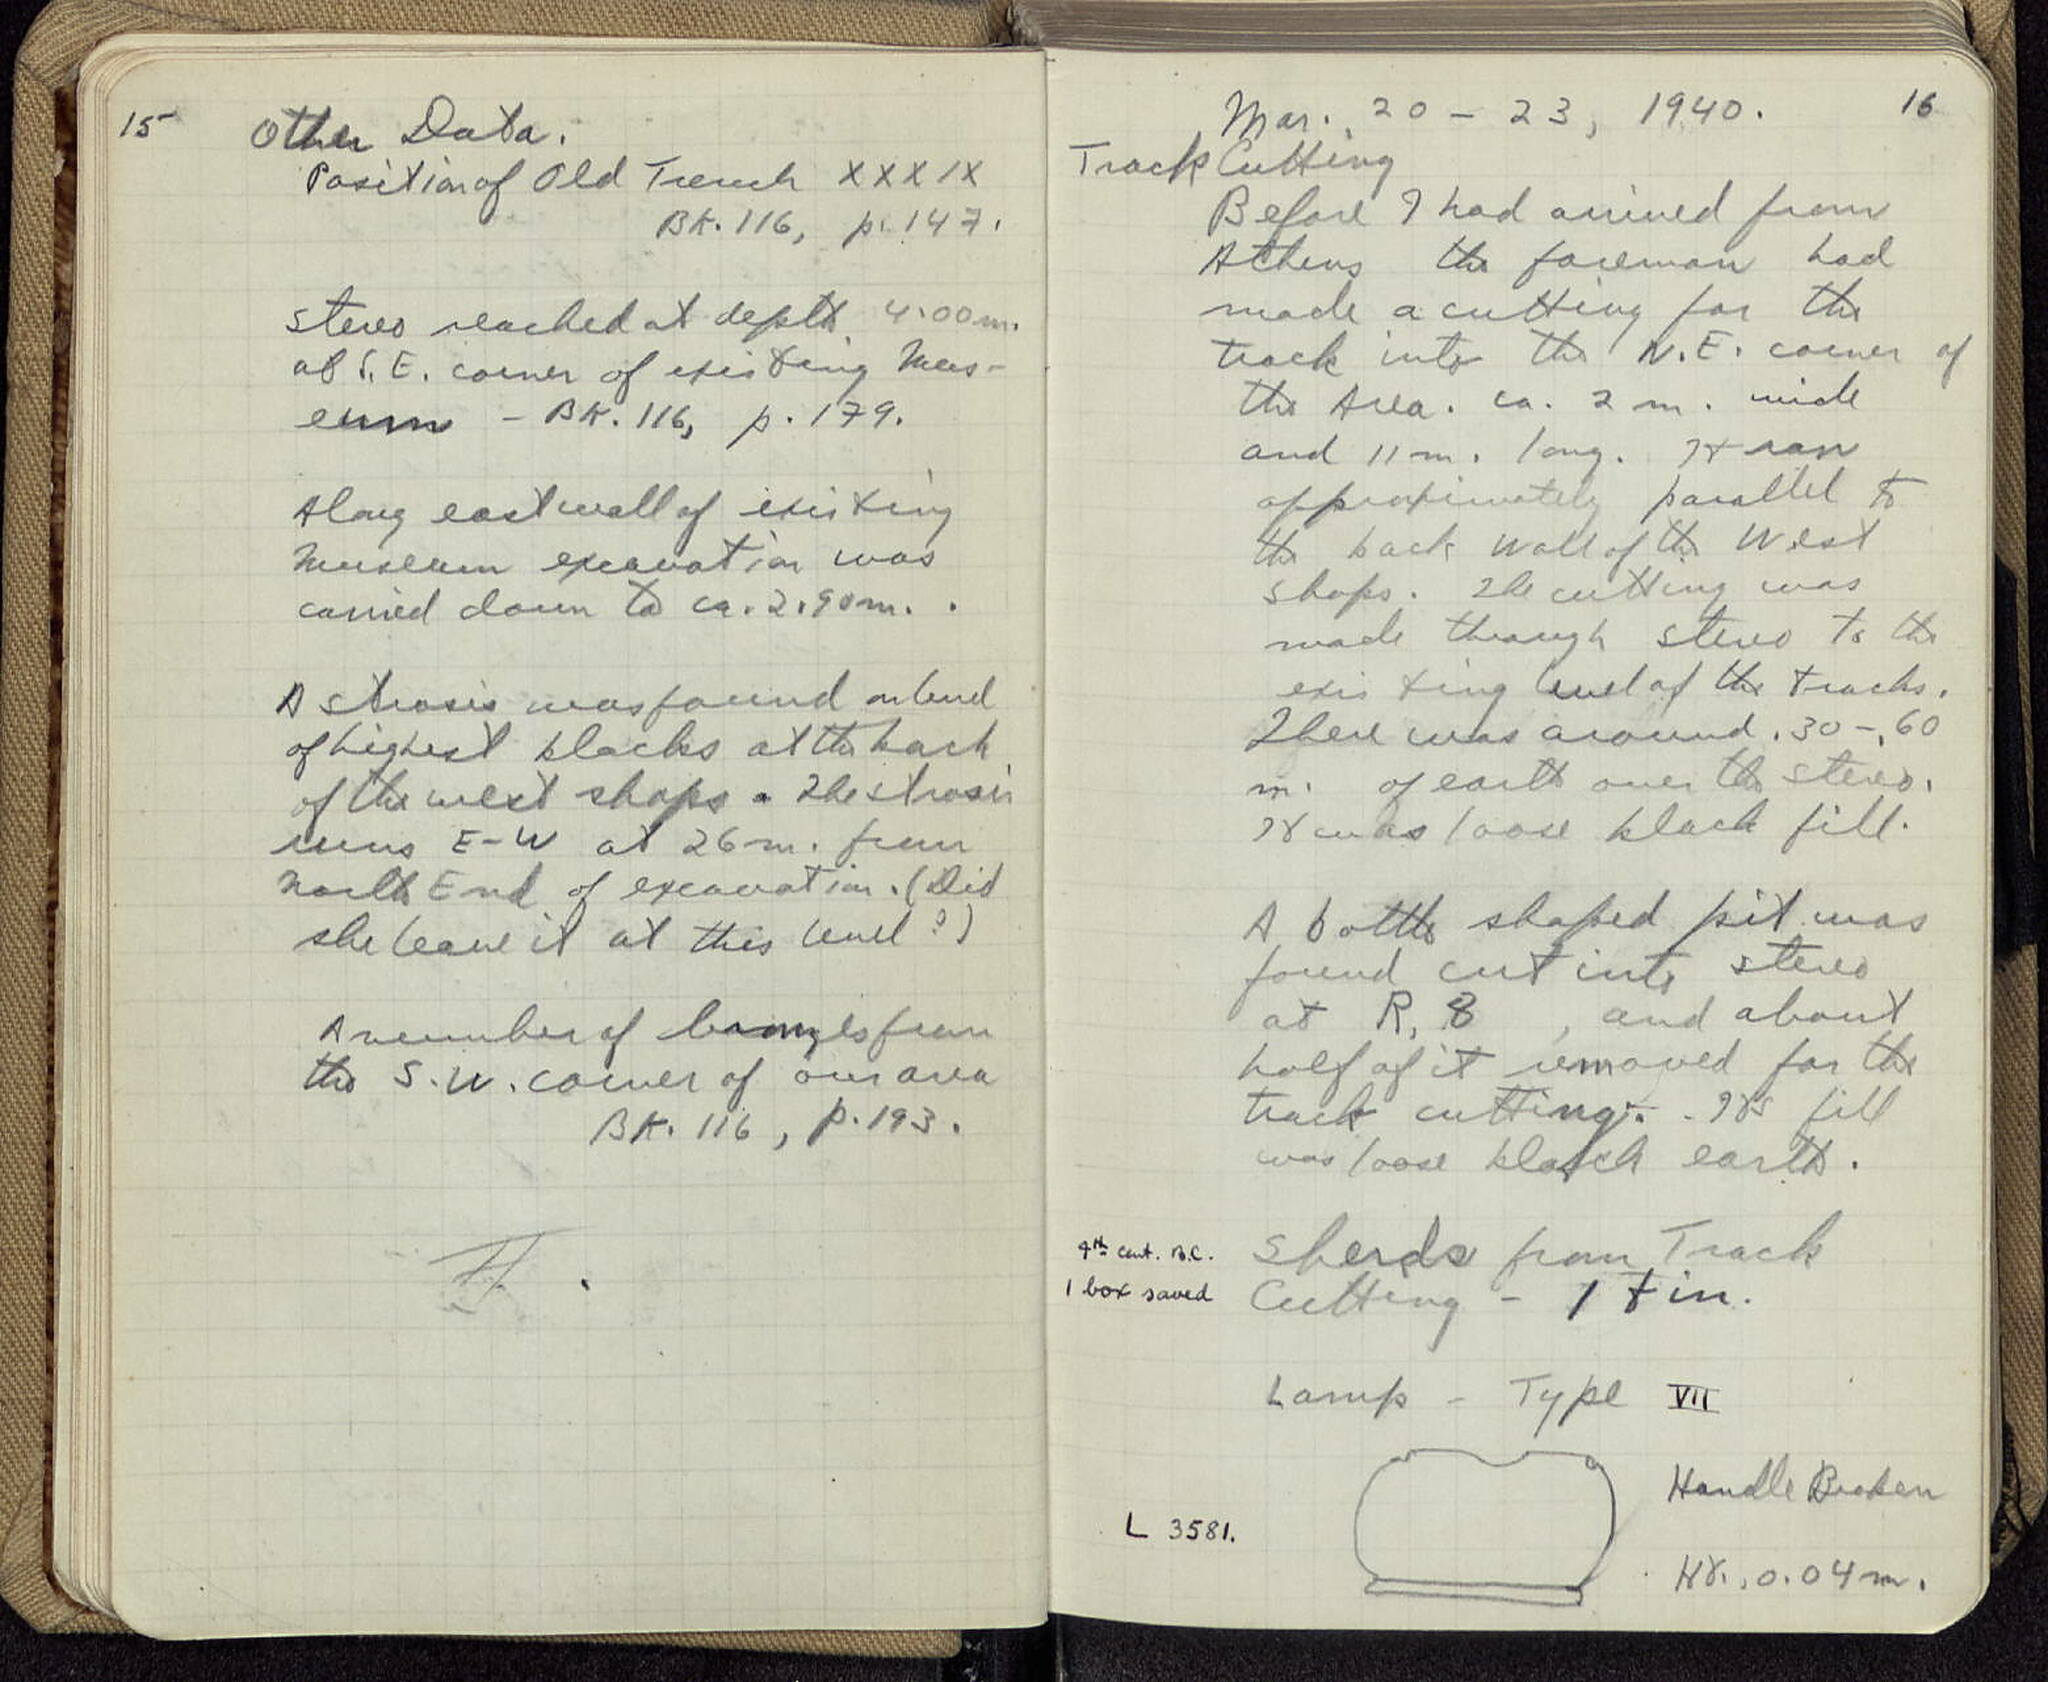 15
Other Data.
Position of Old Trench XXXIX
BK. 116, p. 147.
Stereo reached at depth 4.00 m.
at S.E. corner of existing Mus-
eum - BK. 116, p. 179.
Along east wall of existing
Museum excavation was
carried down to ca. 2.90 m. .
A strosis was found on level
of highest blocks at the back
of the west shops. The strosis
runs E-W at 26 m. from
North End of excavation. (Did
she leave it at this level?)
A number of bronzes from
the S.W. corner of our area
BK. 116, p. 193.
16
Mar. 20 - 23, 1940.
Track Cutting
Before I had arrived from
Athens the foreman had
made a cutting for the
track into the N.E. corner of
the Area. ca. 2 m. wide
and 11 m. long. It ran
approximately parallel to
the back wall of the West
Shops. The cutting was
made through stereo to the
existing level of the tracks.
There was around .30 - .60
m. of earth over the stereo.
It was loose black fill.
A bottle shaped pit was
found cut into stereo
at R, 8 , and about
half of it removed for the
track cutting. Its fill
was loose black earth.
4th cent. B.C.
1 box saved
Sherds from Track
Cutting - 1 tin.
Lamp - Type VII
Handle Broken
L 3581.
Ht., 0.04 m.